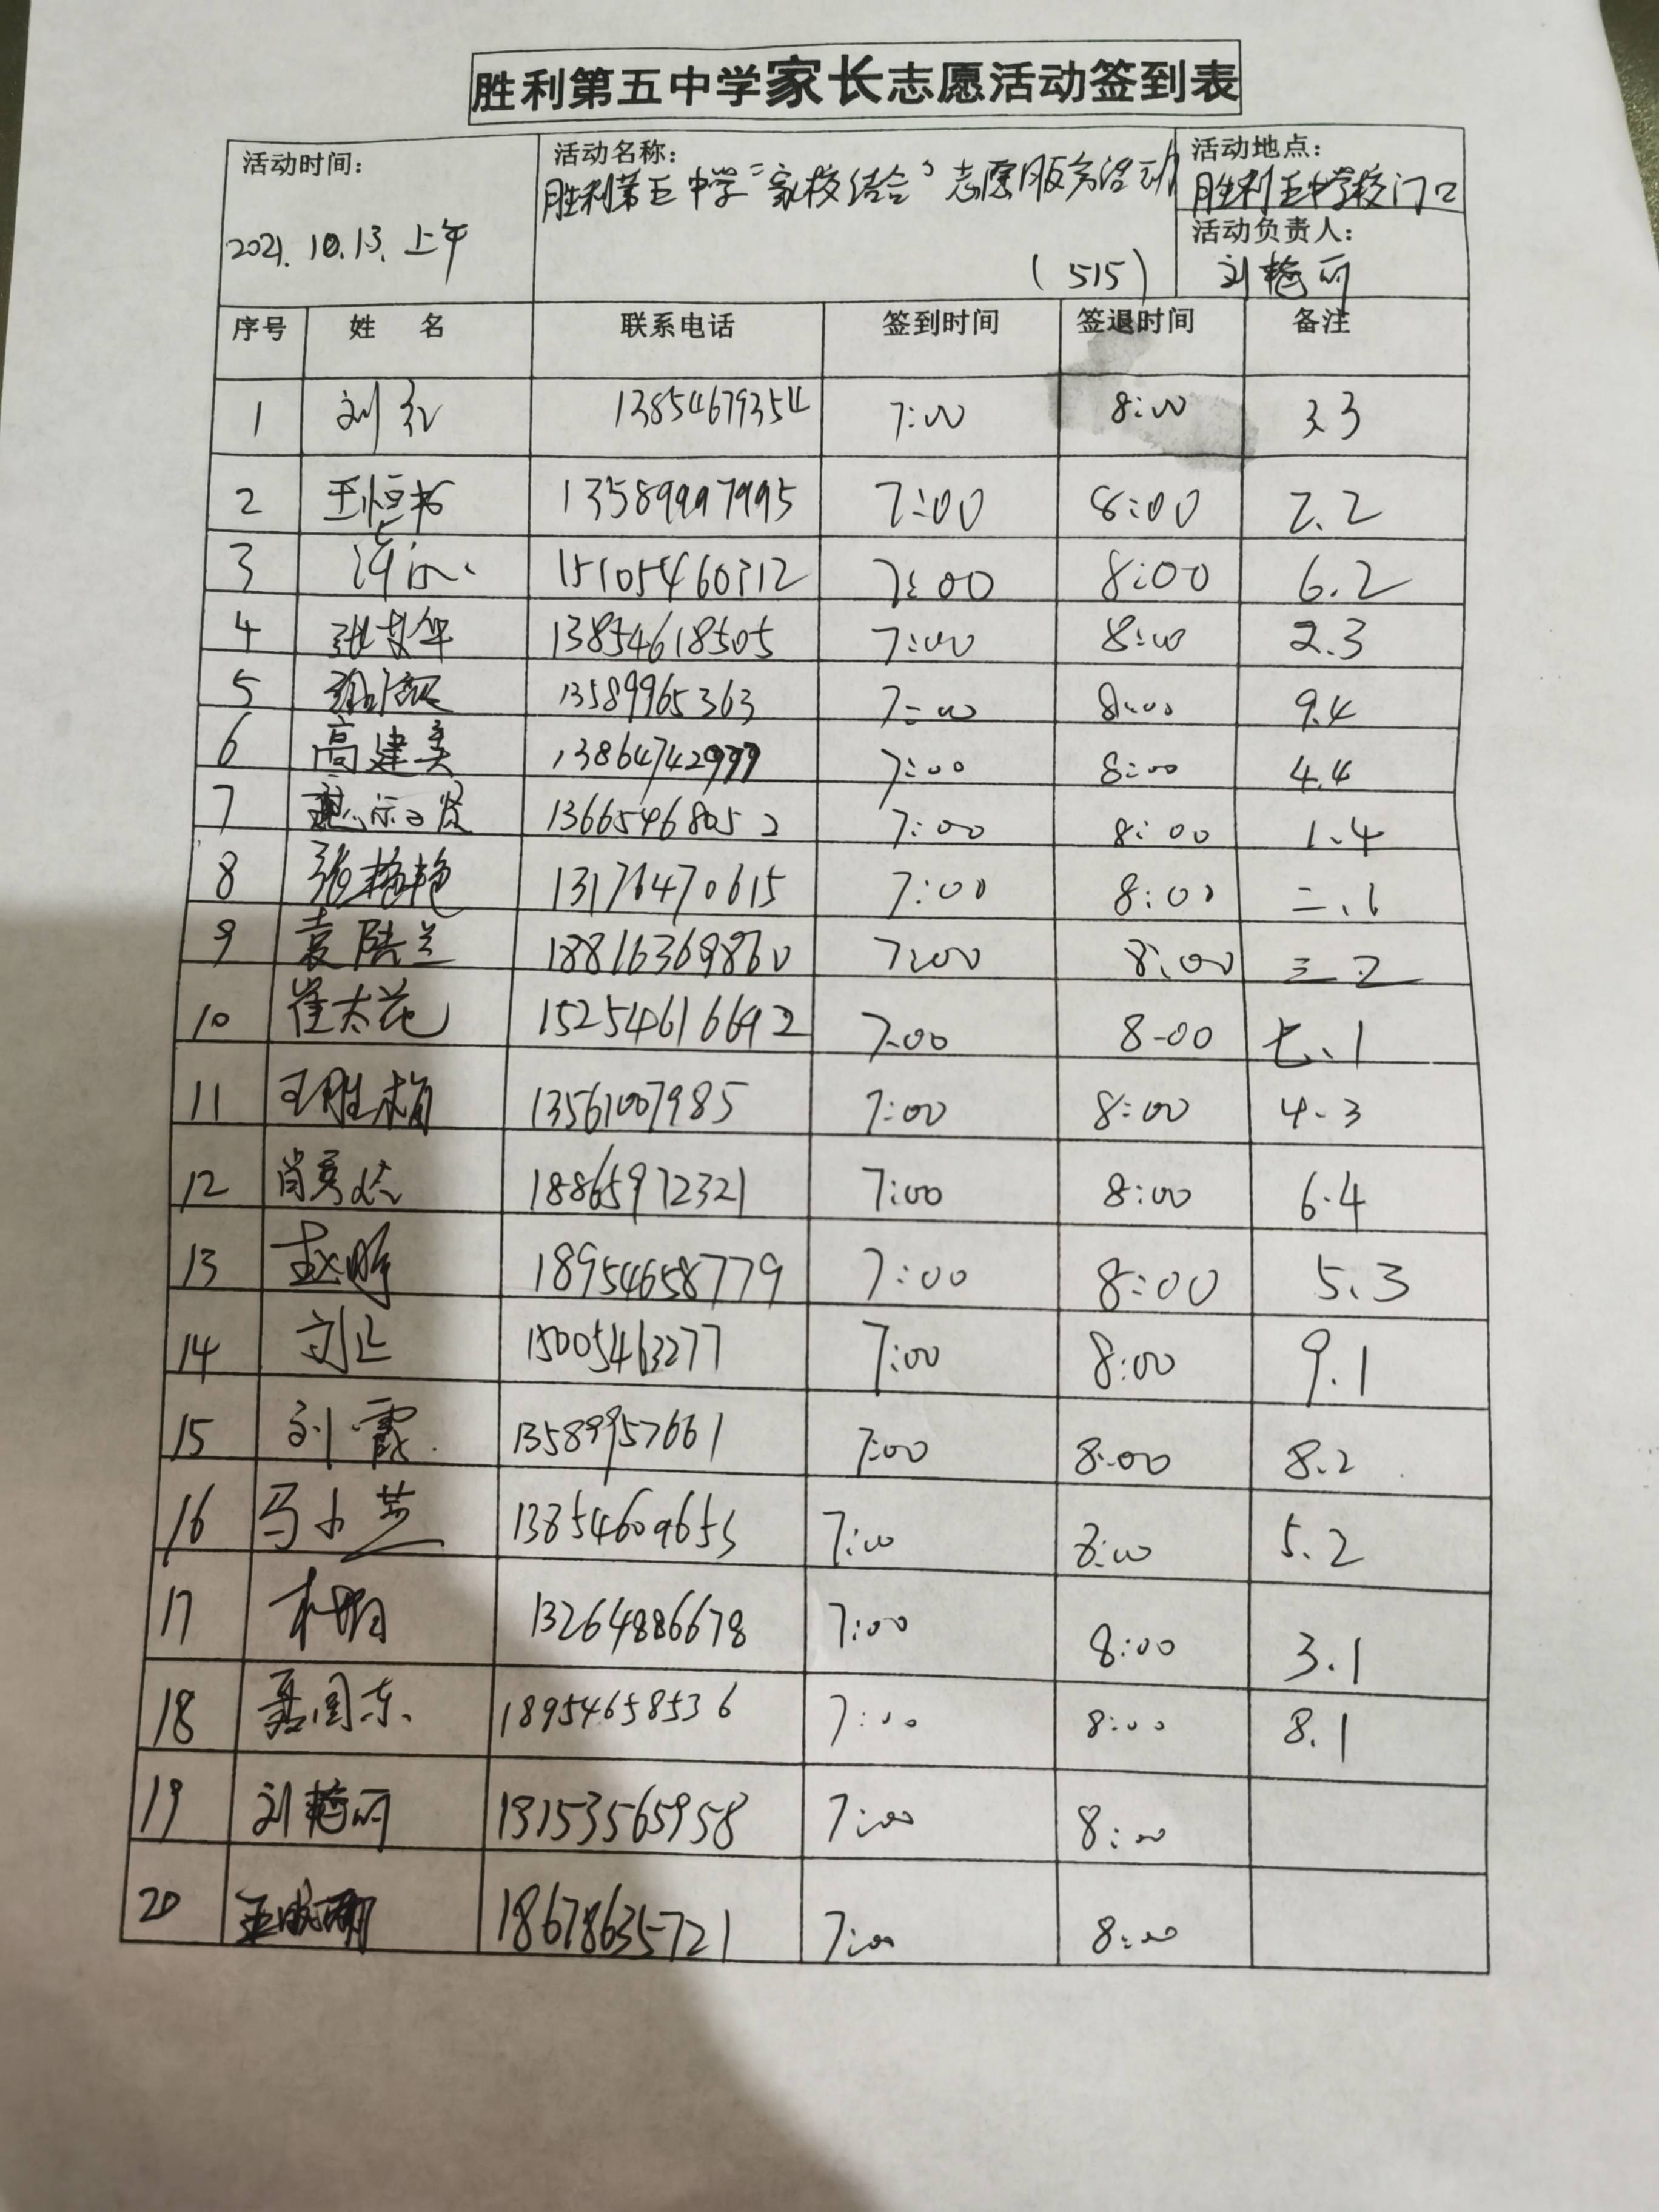 胜利第五中学家长志愿活动签到表
活动时间: 活动名称: 活动地点:
胜利第五中学"家校结合"志愿服务活动 胜利五中学校门口
2021.10.13.上午 活动负责人:
(515) 刘艳丽
序号 姓 名 联系电话 签到时间 签退时间 备注
1 刘红 13854679354 7:00 8:00 3.3
2 王恒 13589997995 7:00 8:00 7.2
3 15105460312 7:00 8:00 6.2
4 张 13854618505 7:00 8:00 2.3
5 13589965363 7:00 8:00 9.4
6 高建美 13864742999 7:00 8:00 4.4
7 13665468052 7:00 8:00 1.4
8 张艳艳 13176470615 7:00 8:00 二.1
9 袁 兰 18816369860 7:00 8:00 三.2
10 崔太花 15254616692 7:00 8-00 七.1
11 王胜梅 13561007985 7:00 8:00 4.3
12 肖秀 18865972321 7:00 8:00 6.4
13 赵 18954658779 7:00 8:00 5.3
14 刘 15005463277 7:00 8:00 9.1
15 刘霞 13589957661 7:00 8:00 8.2
16 马小芝 13854609655 7:00 8:00 5.2
17 13264886678 7:00 8:00 3.1
18 国东 18954658536 7:00 8:00 8.1
19 刘艳丽 13153565958 7:00 8:00
20 王 18678635721 7:00 8:00